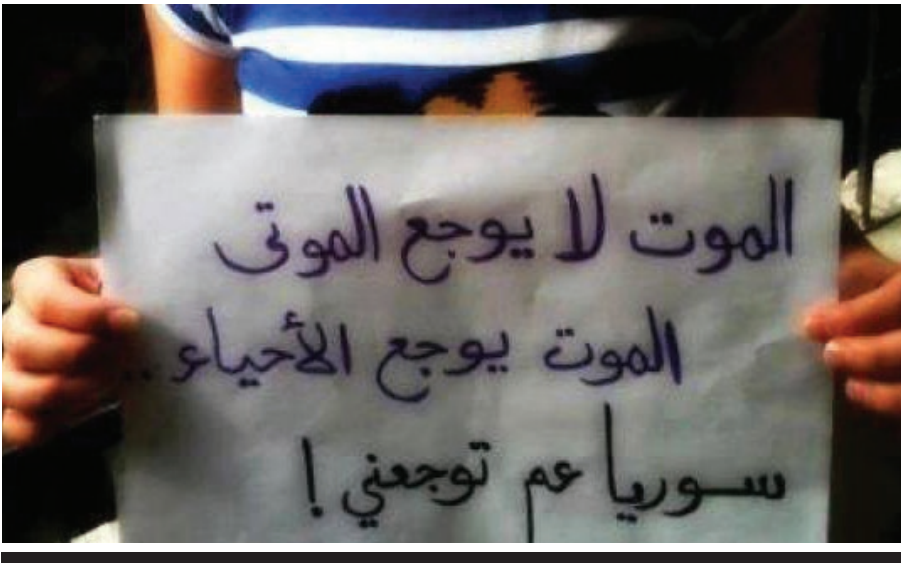 الموت لا يوجع الموتى
الموت يوجع الأحياء ..
سوريا عم توجعني !